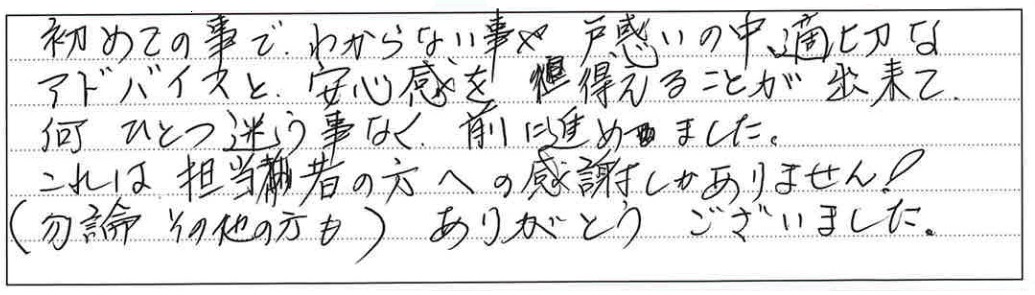 初めての事で、わからない事や 戸惑いの中、適切な
アドバイスと、安心感を 得えることが 出来て、
何 ひとつ迷う事なく、前に進めました。
これは 担当者の方への感謝しかありません!
(勿論 その他の方も) ありがとう ございました。